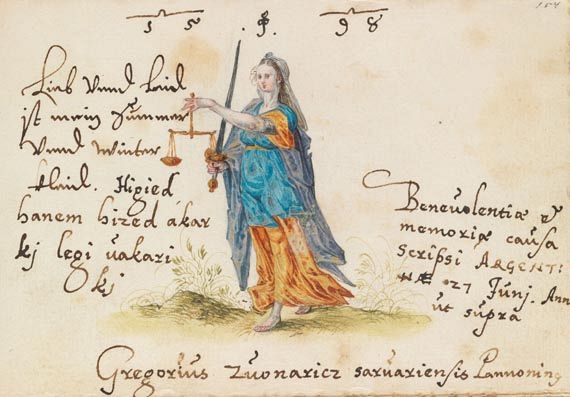 15 98
154
Lieb vnnd Laid
ist mein Summer
vnnd winter
klaid. Higied
hanem hized akar
kj legi uakari
Okj
Beneuolentiæ et
memoriæ causa
scripsi ARGENTI:
NÆ 27 Junj. Ann
ut supra
Gregorius Zuonaricz saruariensis Pannoniug